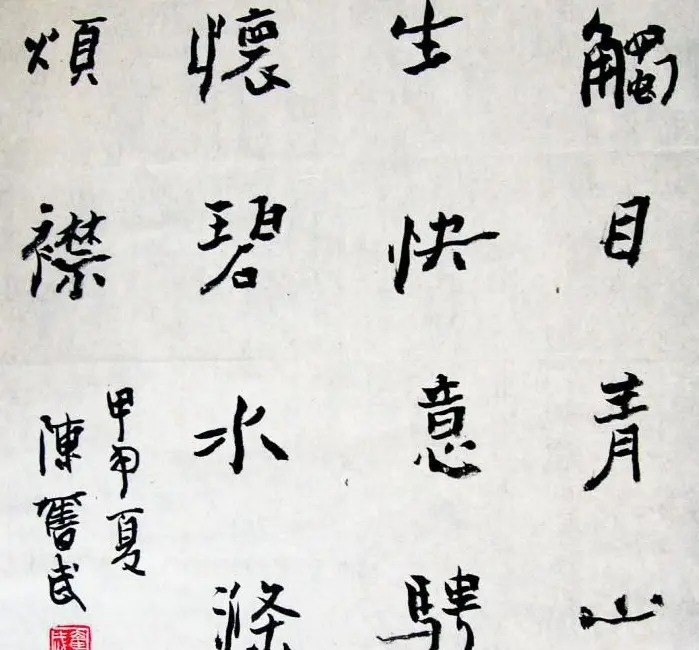 觸目青山
生快意騁
懷碧水滌
煩襟
甲申夏
陳奮武